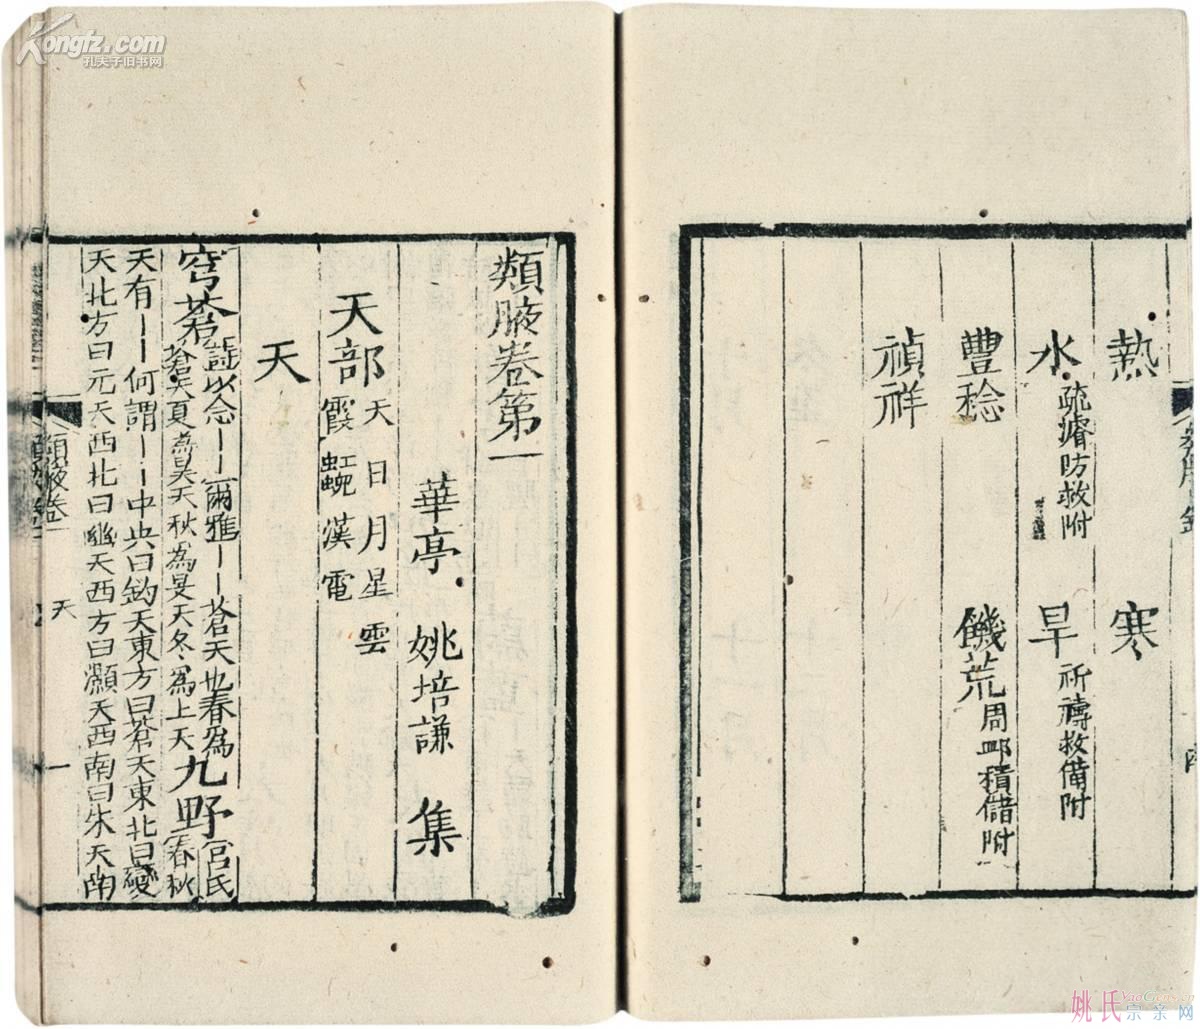 Kongfz.com
孔夫子旧书网
熱　寒
水　疏濬防救附　旱　祈禱救備附
豐稔　饑荒　周䘏積儲附
禎祥
類腋卷第一
華亭　姚培謙　集
天部　天日月星雲
霞虹蜺漢電
天
穹蒼　詩以念｜｜爾雅｜｜蒼天也春為
蒼天夏為昊天秋為旻天冬為上天　九野　呂氏
春秋
天有｜｜何謂｜｜中央曰鈞天東方曰蒼天東北曰變
天北方曰元天西北曰幽天西方曰灝天西南曰朱天南
類腋卷一　天　一
姚氏宗亲网